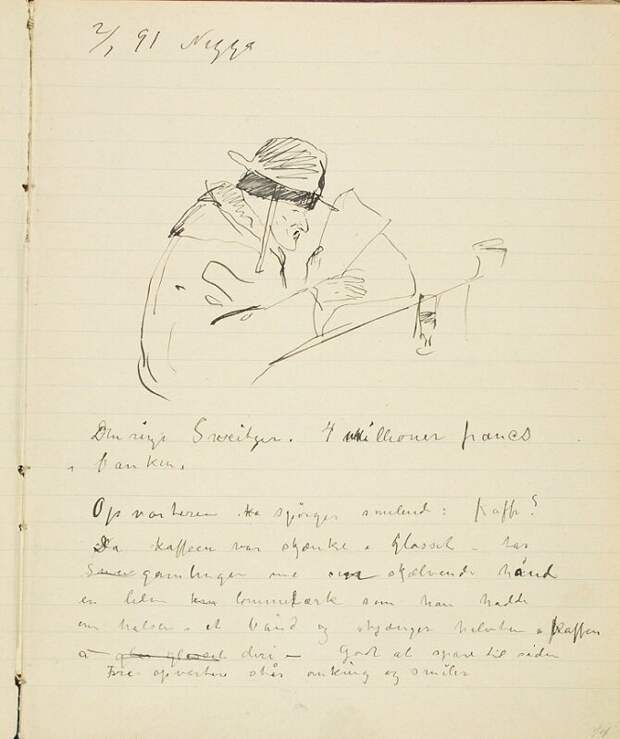 2/1 91 Nizza
Den rige Sweitzer. 4 millioner francs
i banken.
Opvarteren ka spörger smilend: Kaffe?
Da kaffeen var skjænke i Glasset – tar
gamlingen me sin skjælvende hånd
en liden lommelærk som han hadde
om halsen i et bånd og skjænger halvten a kaffen
deri – Godt at spare til siden
Fire opvartere står omkring og smiler